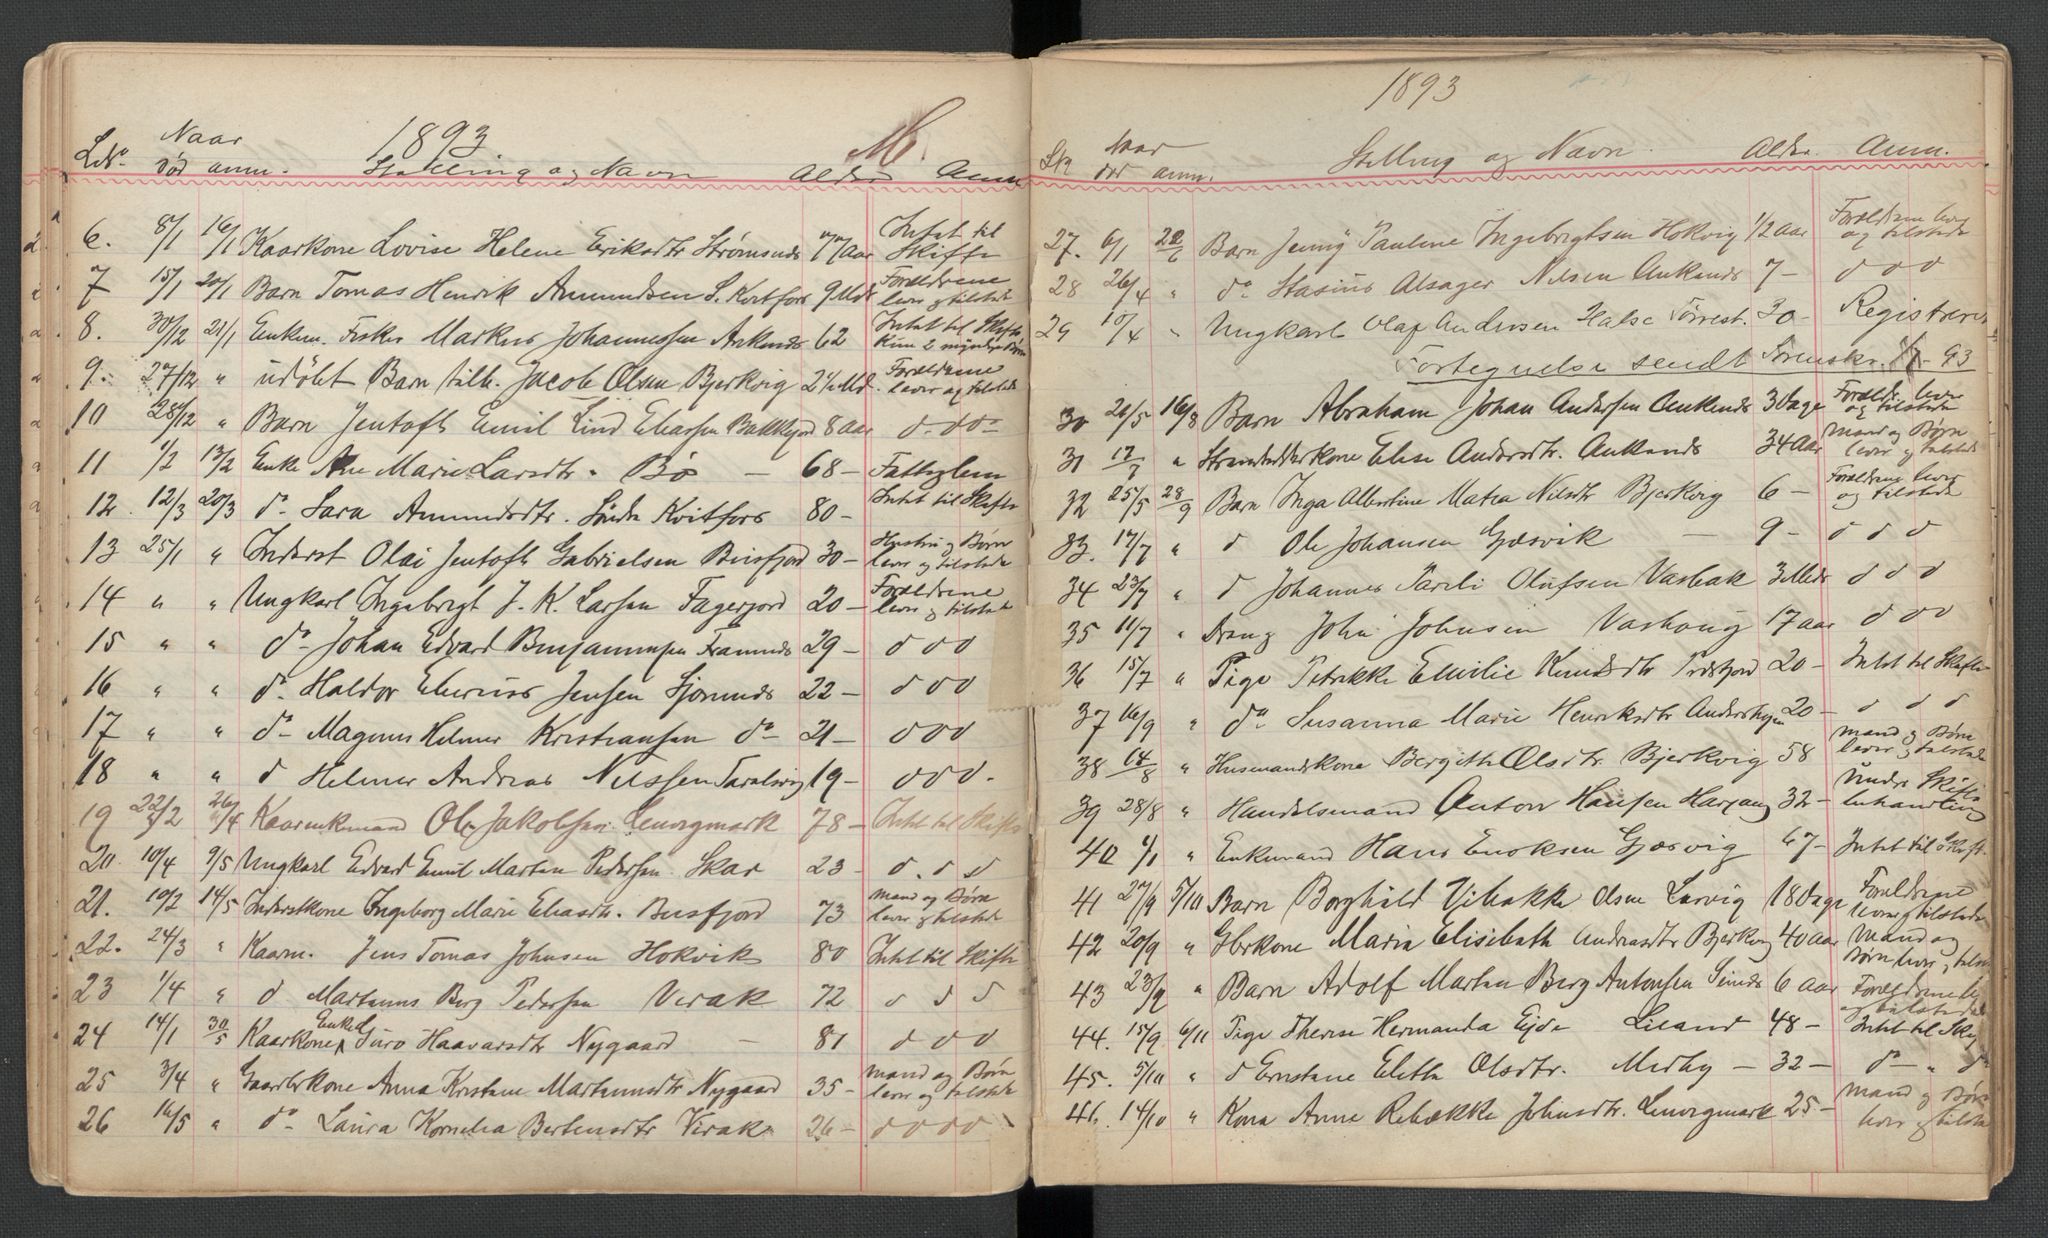 1893
LNo. Naar død anm. Stilling og Navn Alder Anm
6. 8/1 16/1 Kaarkone Lovise Helene Eriksdtr Strømsnds 77 Aar Intet til Skifte
7 15/1 20/1 Barn Tomas Henrik Amundsen S. Kvitfors 9 Mdr Forældrene lever og tilstede
8. 30/12 21/1 Enkem. Fisker Markus Johannessen Ankends 62 Intet til Skifte Kun 2 myndige Børn
9. 27/12 " udøbt Barn tilh. Jacob Olsen Bjerkvig 2½ Md. Forældrene lever og tilstede
10 28/12 " Barn Jentoft Emil Lind Eliassen Bakkejord 8 aar d. do-
11 1/2 13/2 Enke Ane Marie Larsdtr. Bø — 68 — Fattiglem
12. 12/3 20/3 do. Sara Amundsdtr. Søndr Kvitfors 80 — Intet til Skifte
13 25/1 " Inderst Olai Jentoft Gabrielsen Busfjord 30 — Hustru og Børn lever og tilstede
14 " " Ungkarl Ingebrigt J. K. Larsen Fagerjord 20 — Forældrene lever og tilstede
15 " " do Johan Edvard Benjaminsen Framnds 29 — d d d
16 " " do. Haldor Jensen 22 — d d d
17 " " do- Magnus Helmer Kristiansen do 21 — d d d
18 " " d Helmer Andreas Nilssen Taralsvig 19 — d d d.
19 22/2 26/4 Kaarenkemand Ole Jakobsen Lenvigmark 78 — Intet til Skifte
20. 10/4 9/5 Ungkarl Edvard Emil Martin Pedersen Skar 23 — d. d d
21. 10/2 14/5 Inderstkone Ingeborg Marie Eliasdtr. Busfjord 73 mand og Børn lever og tilstede
22. 24/3 " Kaarm. Jens Tomas Johnsen Hokvik 80 Intet til Skifte
23 1/4 " d Martinus Berg Pedersen Virak 72 d d d
24 14/1 30/5 Kaarkone Enke Guro Haavarsdtr Nygaard — 81 d d d
25 3/4 " Gaardbrkone Anna Kristine Martinusdtr Nygaard 35 — mand og Børn lever og tilstede
26 16/5 " do- Laura Kornelia Berteusdtr Virak 26 — d d d d
1893
LNr Naar død anm. Stilling og Navn. Alder. Anm.
27. 6/1 22/6 Barn Jenny Pauline Ingebrigtsen Hokvig 1/2 aar Forældrene lever og tilstede
28 26/4 " do Stasius Alsager Nilsen Ankends 7 — d d d
29 10/4 " Ungkarl Olaf Andersen Halse Torrest. 30 — Registreres
Fortegnelse sendt Sorenskr. 93
30 26/5 16/8 Barn Abraham Johan Andersen Ankends 3 Dage Forældr. lever og tilstede
31 17/7 " Strandsidderkone Elise Andersdtr. Ankends 34 Aar mand og Børn lever og tilstede
32 25/5 28/9 Barn Inga Albertine Matea Nilsdtr Bjerkvig 6 — Forældrene lever og tilstede
33. 17/7 " d Ole Johansen Gjesvik — 9 — d d d
34 23/7 " d Johannes Pareli Olufsen Vasbak 3 Mdr d d d
35 11/7 " Dreng John Johnsen Vashaug 17 aar d d d
36 15/7 " Pige Petrikke Emilie Knudsdtr 20 — Intet til Skifte
37 16/9 " do- Susanna Marie Henriksdtr 20 — d d d
38 14/8 " Husmandskone Bergithe Olsdtr. Bjerkvig 58 mand og Børn lever og tilstede
39 28/8 " Handelsmand Anton Hansen Harjang 32 — Under Skiftebehandling
40 1/1 " Enkemand Hans Enoksen Gjesvig 67 — Intet til Skift.
41 27/9 5/10 Barn Borghild Vibakke Olsen Larvig 18 Dage Forældrene lever og tilstede
42 20/9 " Gbrkone Maria Elisebath Andreasdtr Bjerkvig 40 aar Mand og Børn lever og tilste
43 23/9 " Barn Adolf Martin Berg Antonsen 6 aar Forældrene le og tilstede
44. 15/9 6/11 Pige Therese Hermanda Ejde Liland 48 — Intet til Sk
45. 5/10 " d Ernstine Elitha Olsdtr. Medby — 32 — do — " do
46. 14/10 " Kona Anne Rebækka Johnsdtr. Lenvigmark 25 — mand og Børn lever og tilste